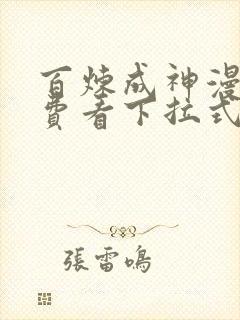 百炼成神漫
费看下拉式
張雷鳴